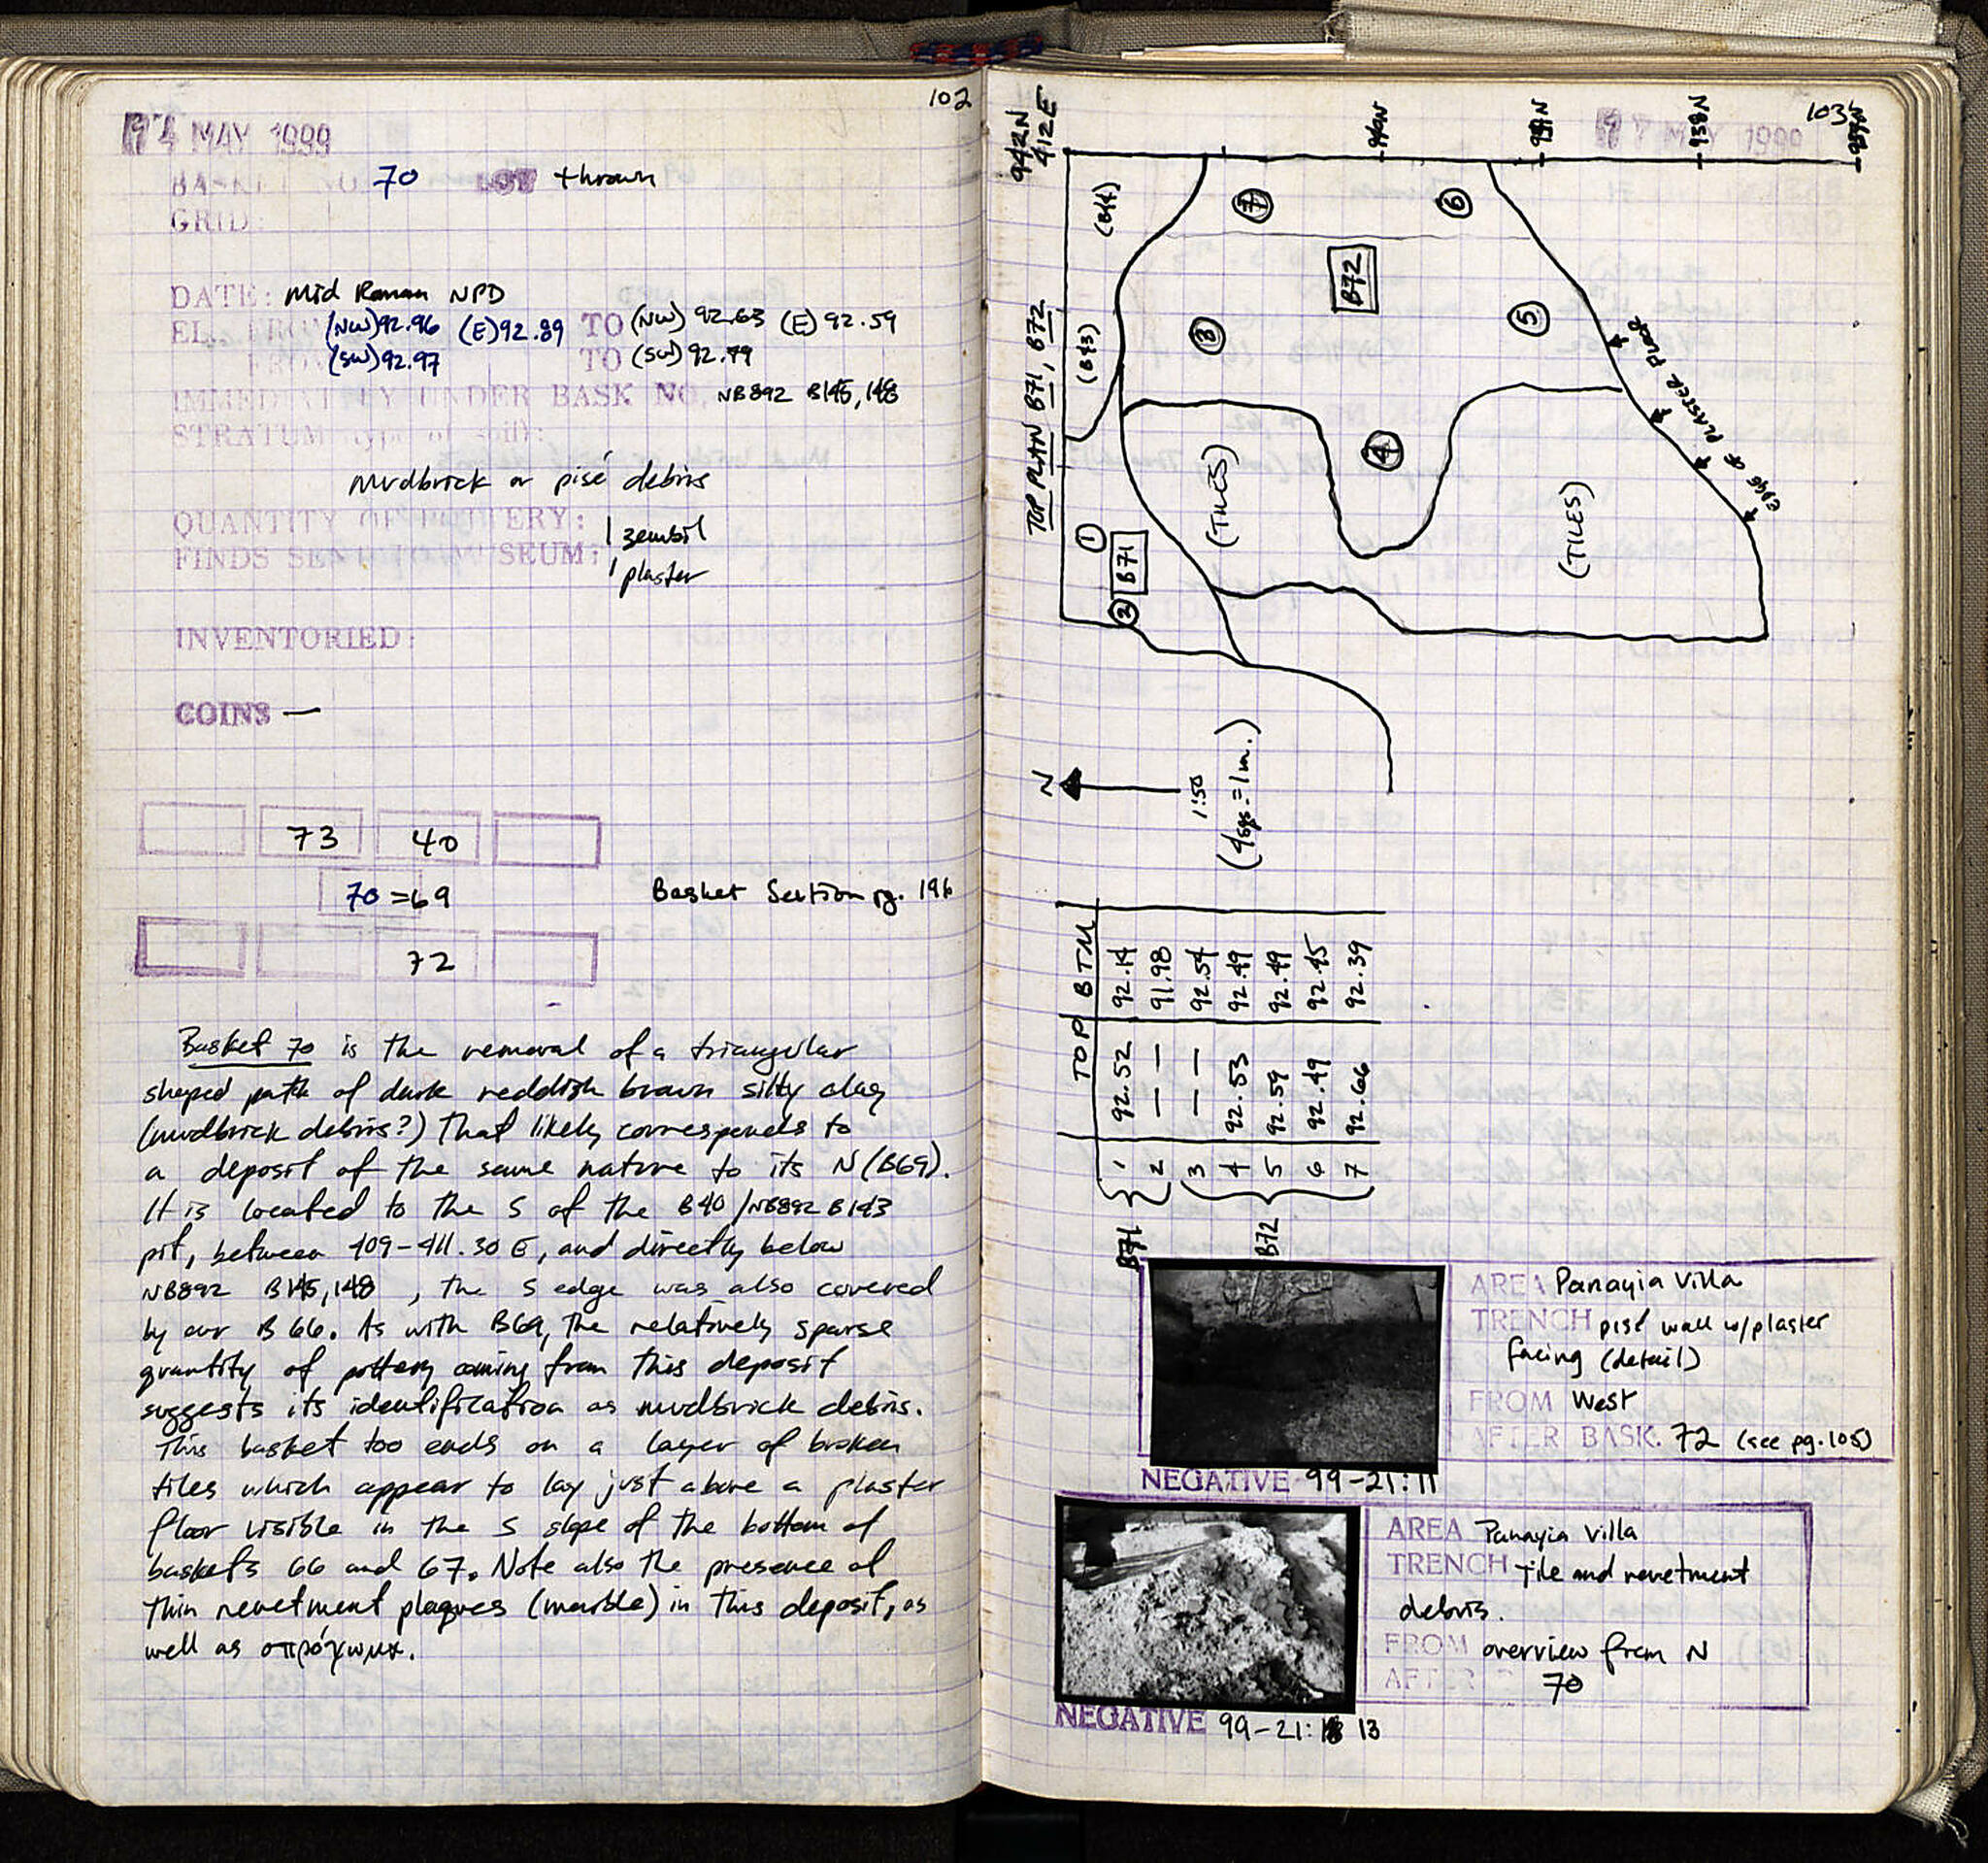 102
MAY 1999
BASKET NO. 70 LOT thrown
GRID:
DATE: Mid Roman NPD
EL. FROM (NW) 92.96 (E) 92.89 TO (NW) 92.63 (E) 92.59
FROM (SW) 92.97 TO (SW) 92.79
IMMEDIATELY UNDER BASK NO. NB892 B145, 148
STRATUM (type of soil):
mudbrick or pisé debris
QUANTITY OF POTTERY: 1 zembil
FINDS SENT TO MUSEUM: 1 plaster
INVENTORIED:
COINS —
73 40
70 = 69 Basket Section pg. 196
72
Basket 70 is the removal of a triangular
shaped patch of dark reddish brown silty clay
(mudbrick debris?) That likely corresponds to
a deposit of the same nature to its N (B69).
It is located to the S of the B40/NB892 B143
pit, between 409-411.30 E, and directly below
NB892 B145, 148, the S edge was also covered
by our B 66. As with B69, the relatively sparse
quantity of pottery coming from this deposit
suggests its identification as mudbrick debris.
This basket too ends on a layer of broken
tiles which appear to lay just above a plaster
floor visible in the S slope of the bottom of
baskets 66 and 67. Note also the presence of
Thin revetment plaques (marble) in this deposit, as
well as
103
MAY 1999
942N
412E
940N
939N
938N
TOP PLAN B71, B72
(B44)
(B43)
7
6
B72
3
5
4
1
B71
2
(TILES)
(TILES)
EDGE OF PLASTER FLOOR
N
1:50
(4 sqs. = 1m.)
TOP BTM
B71
1 92.52 92.14
2 — — 91.98
B72
3 — — 92.54
4 92.53 92.49
5 92.59 92.49
6 92.49 92.45
7 92.66 92.39
AREA Panayia Villa
TRENCH pisé wall w/plaster
facing (detail)
FROM West
AFTER BASK. 72 (see pg. 105)
NEGATIVE 99-21:11
AREA Panayia Villa
TRENCH Tile and revetment
debris.
FROM overview from N
AFTER 70
NEGATIVE 99-21: 13